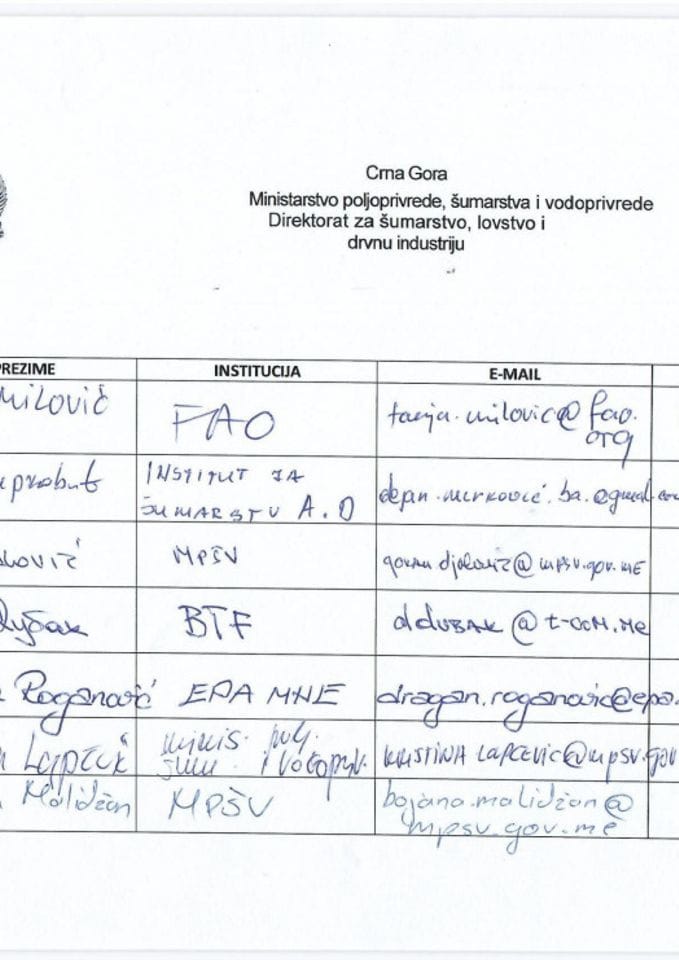 Crna Gora
Ministarstvo poljoprivrede, šumarstva i vodoprivrede
Direktorat za šumarstvo, lovstvo i
drvnu industriju
REZIME INSTITUCIJA E-MAIL
MILOVIĆ FAO tanja.milovic@fao.
org
INSTITUT ZA
ŠUMARSTVU A.D
MPŠV
BTF ddubak@t-com.me
Roganović EPA MNE dragan.roganovic@epa.
minis. polj.
šum. i vodopr. KRISTINA LAPCEVIC@mpsv.gov
Malidžan MPŠV bojana.malidzan@
mpsv.gov.me